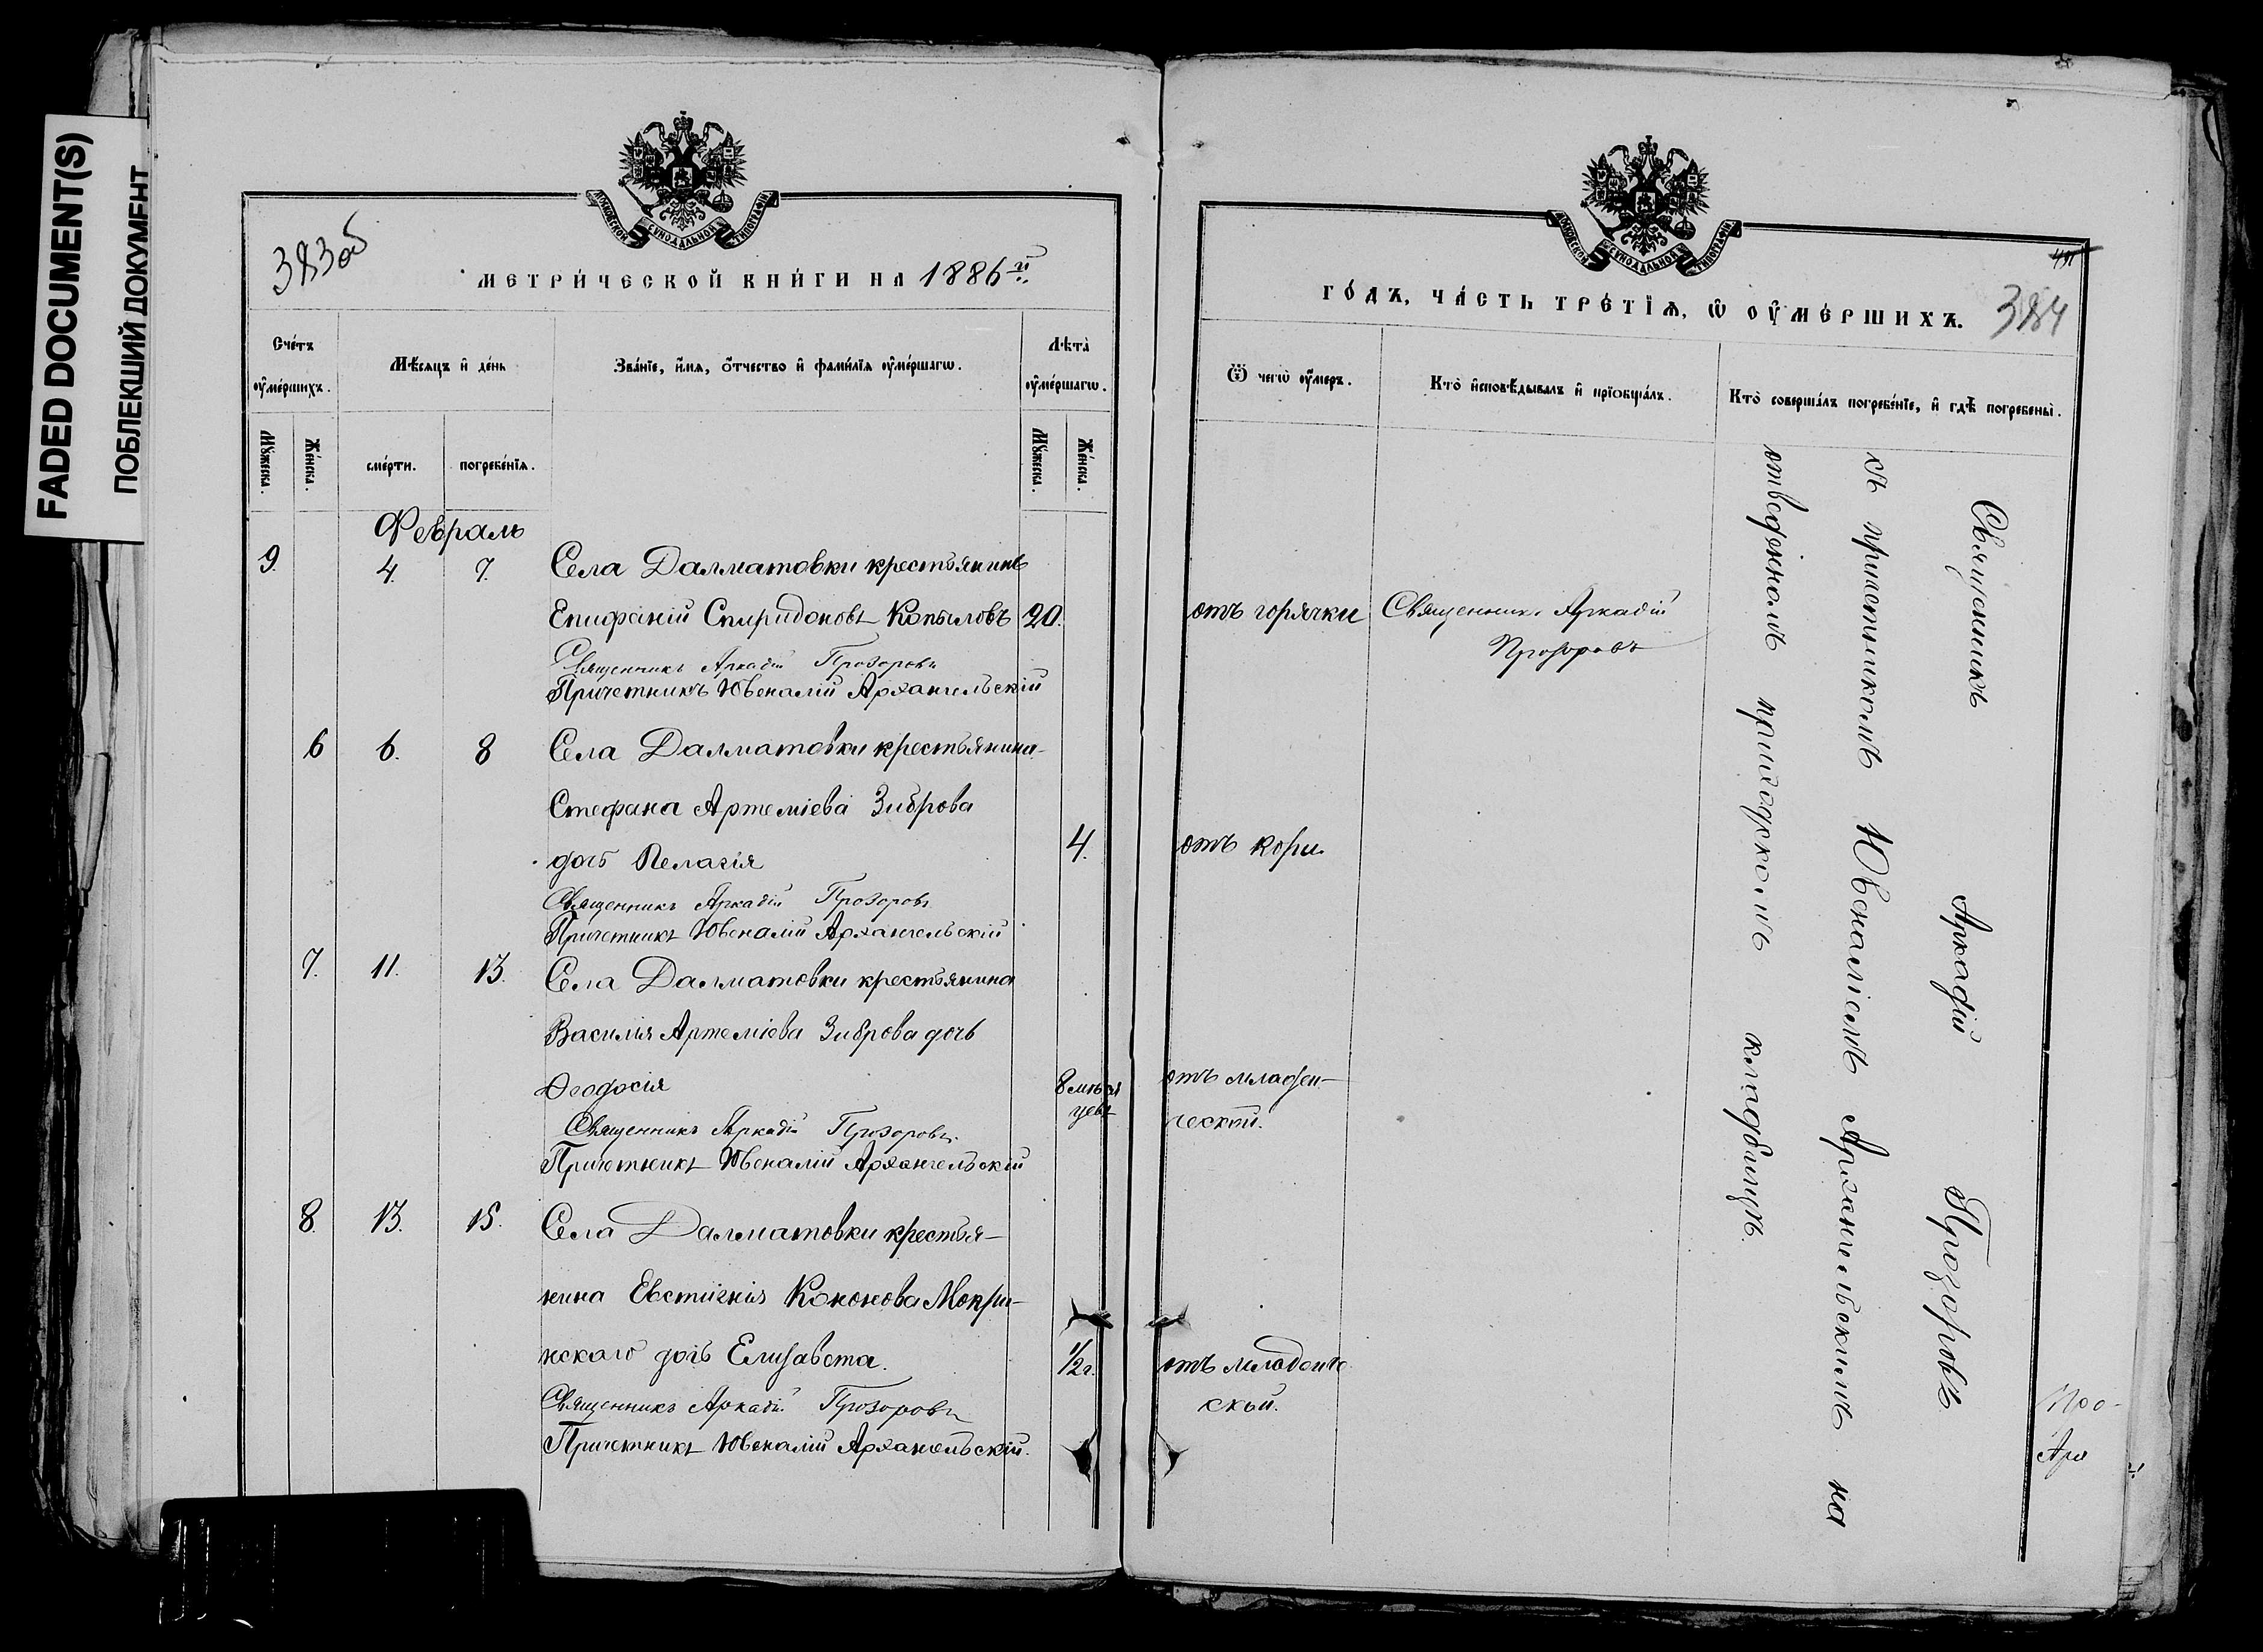 FADED DOCUMENT(S)
ПОБЛЕКШИЙ ДОКУМЕНТ
МОСКОВСКОЙ СѴНОДАЛЬНОЙ ТИПОГРАФІИ
383об
МЕТРИ́ЧЕСКОЙ КНИ́ГИ НА 1886 й.
Сче́тъ ᲂу҆ме́ршихъ.
Мѣ́сяцъ и҆ де́нь
Зва́нїе, и҆́мя, ѻ҆́тчество и҆ фами́лїя ᲂу҆ме́ршагѡ.
Лѣ́та ᲂу҆ме́ршагѡ.
Мꙋ́жеска.
Же́нска.
сме́рти.
погребе́нїя.
Мꙋ́жеска.
Же́нска.
Февраль
9. 4. 7. Села Далматовки крестьянинъ
Епифаній Спиридоновъ Копыловъ 20.
Священникъ Аркадій Прозоровъ
Причетникъ Ювеналій Архангельскій
6 6. 8 Села Далматовки крестьянина
Стефана Артеміева Зиброва
дочь Пелагія 4.
Священникъ Аркадій Прозоровъ
Причетникъ Ювеналій Архангельскій
7. 11. 13. Села Далматовки крестьянина
Василія Артеміева Зиброва дочь
Ѳеодосія 8 мѣся
цевъ
Священникъ Аркадій Прозоровъ.
Причетникъ Ювеналій Архангельскій
8. 13. 15. Села Далматовки крестья-
нина Евстигнія Кононова Мокри-
нскаго дочь Елисавета. 1/2 г.
Священникъ Аркадій Прозоровъ
Причетникъ Ювеналій Архангельскій.
МОСКОВСКОЙ СѴНОДАЛЬНОЙ ТИПОГРАФІИ
ГО́ДЪ, ЧА́СТЬ ТРЕ́ТЇЯ, Ѡ҆ ОУ҆МЕ́РШИХЪ.
384
Ѿ чегѡ̀ ᲂу҆́меръ.
Кто̀ и҆сповѣ́дывалъ и҆ прїѡбща́лъ.
Кто̀ соверша́лъ погребе́нїе, и҆ гдѣ̀ погребены̀.
отъ горячки Священникъ Аркадій
Прозоровъ
отъ кори.
отъ младен-
ческой.
отъ младенче
ской.
Священникъ Аркадій Прозоровъ
съ причетникомъ Ювеналіемъ Архангельскимъ на
отведенномъ приходскомъ кладбищѣ.
Про-
Арх